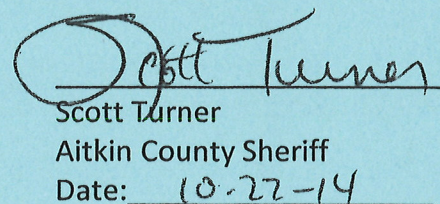 Scott Turner
Scott Turner
Aitkin County Sheriff
Date: 10-22-14